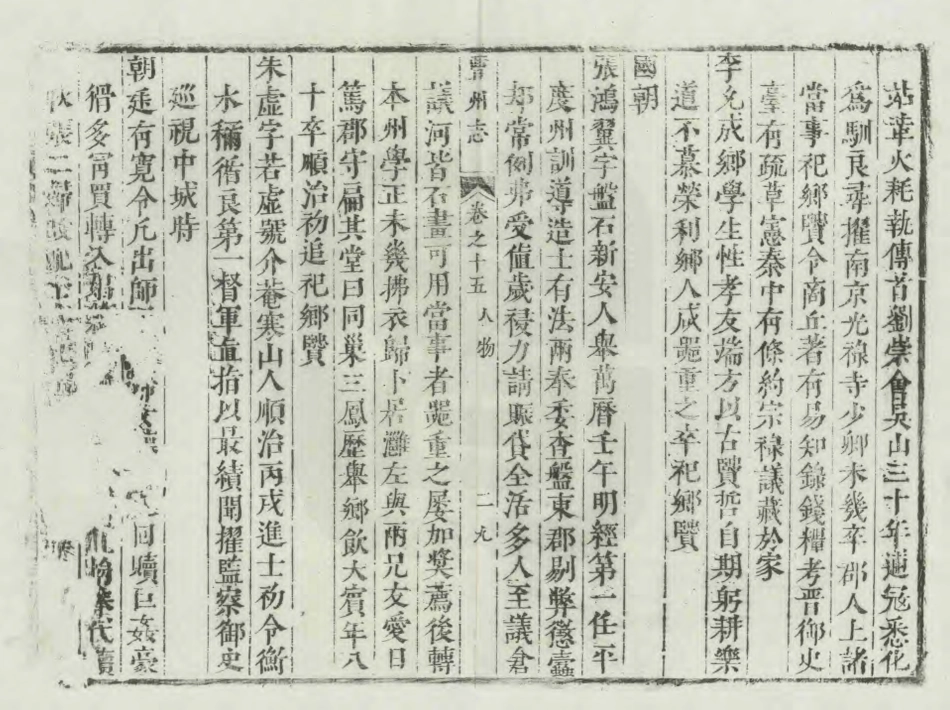 站葦火耗執傳首劉崇會吳山三十年逋冦悉化
為馴良尋擢南京光祿寺少卿未幾卒郡人上諸
當事祀鄉賢令商丘著有易知錄錢糧考晋御史
臺有疏草憲秦中有條約宗祿議藏於家
李允成鄉學生性孝友端方以古賢哲自期躬耕樂
道不慕榮利鄉人咸噐重之卒祀鄉賢
國朝
張鴻翼字盤石新安人舉萬曆壬午明經第一任平
度州訓導造士有法兩奉委查盤東郡剔弊懲蠹
却常例弗受值歲祲力請賑貸全活多人至議倉
曹州志 卷之十五 人物 二九
議河皆石畫可用當事者噐重之屡加奬薦後轉
本州學正未幾拂衣歸卜居灉左與兩兄友愛日
篤郡守扁其堂曰同巢三鳳歷舉鄉飲大賓年八
十卒順治初追祀鄉賢
朱虛字若虛號介菴寒山人順治丙戌進士初令衡
水稱循良第一督軍直指以最績聞擢監察御史
巡視中城時
朝廷有寛令凡出師 回贖巨姦豪
猾多賔買轉入
張二